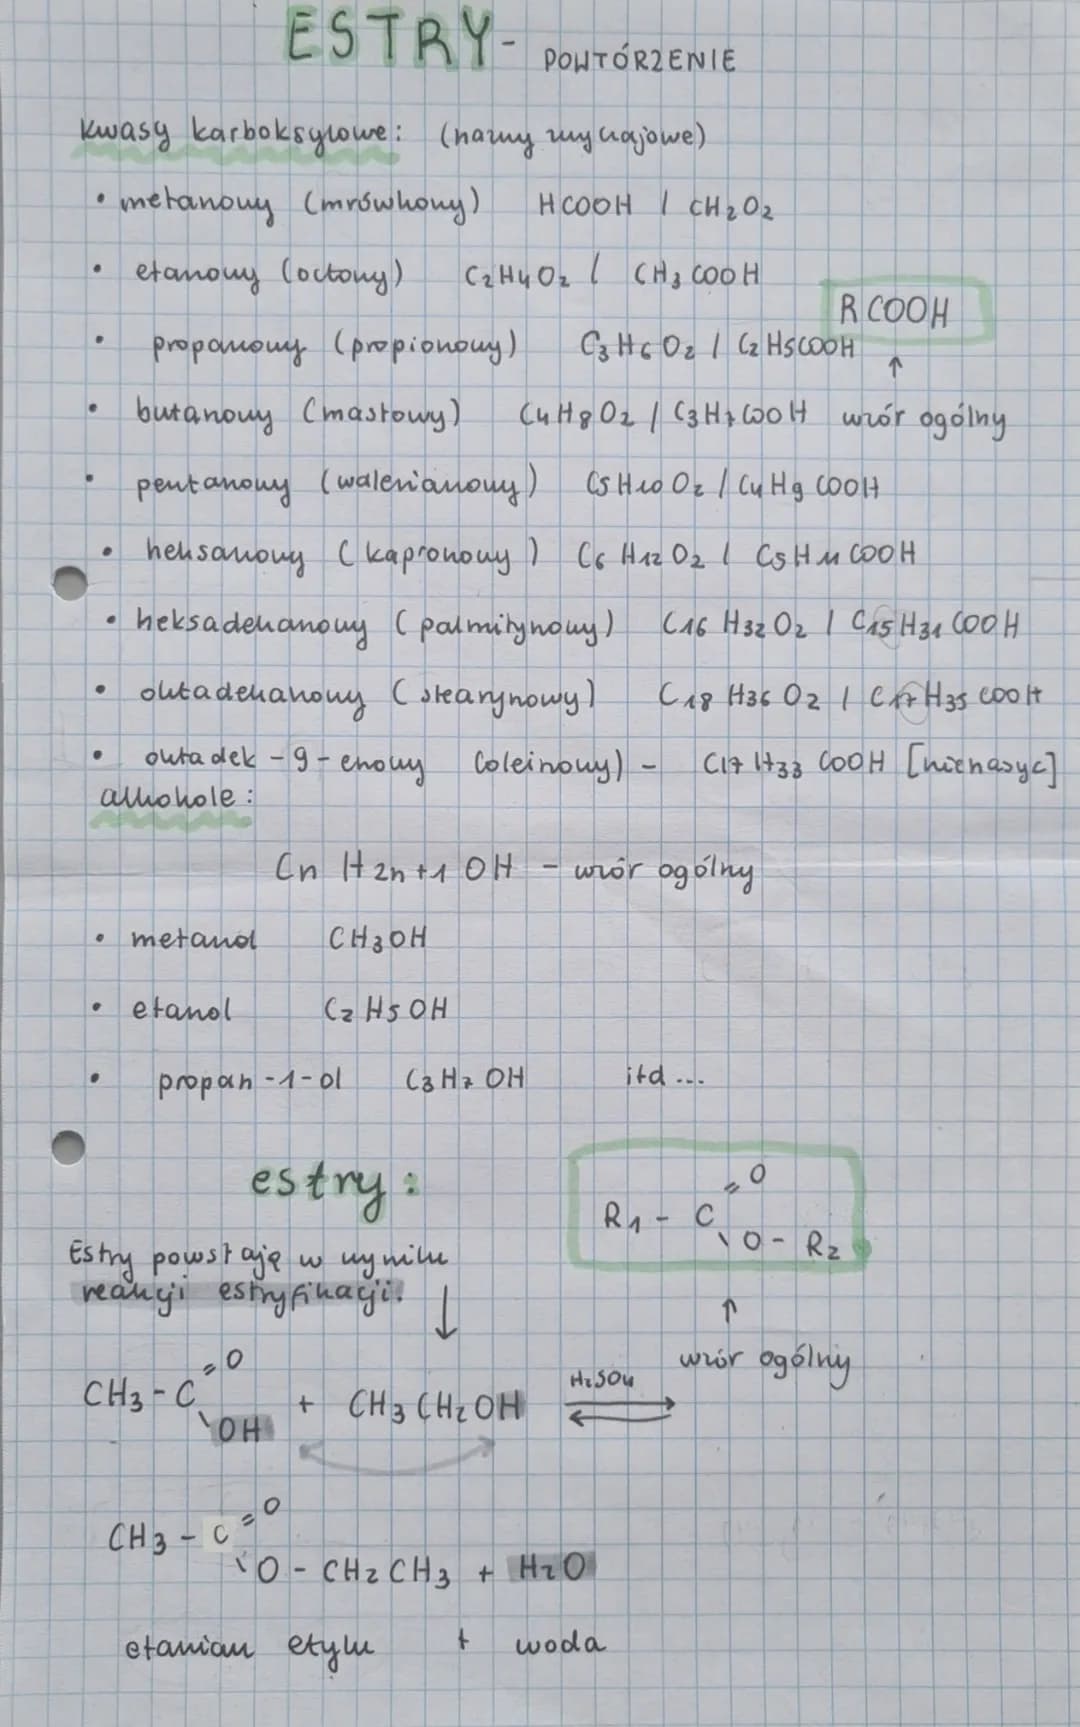 ESTRY - POWTÓRZENIE
kwasy karboksylowe: (nazwy zwyczajowe)
• metanowy (mrówkowy) HCOOH / CH₂O₂
• etanowy (octowy) C₂H₄O₂ / CH₃COOH
RCOOH
• propanowy (propionowy) C₃H₆O₂ / C₂H₅COOH
↑
• butanowy (masłowy) C₄H₈O₂ / C₃H₇COOH wzór ogólny
• pentanowy (walerianowy) C₅H₁₀O₂ / C₄H₉COOH
• heksanowy (kapronowy) C₆H₁₂O₂ / C₅H₁₁COOH
• heksadekanowy (palmitynowy) C₁₆H₃₂O₂ / C₁₅H₃₁COOH
• oktadekanowy (stearynowy) C₁₈H₃₆O₂ / C₁₇H₃₅COOH
• oktadek-9-enowy (oleinowy) - C₁₇H₃₃COOH [nienasyc]
alkohole:
CnH2n+1OH - wzór ogólny
• metanol CH₃OH
• etanol C₂H₅OH
• propan-1-ol C₃H₇OH itd...
estry:
R₁ - C = O
\ O - R₂
Estry powstają w wyniku
reakcji estryfikacji.
↓ ↑
wzór ogólny
CH₃ - C = O
\ OH + CH₃CH₂OH H₂SO₄ ⇌
CH₃ - C = O
\ O - CH₂CH₃ + H₂O
etanian etylu + woda